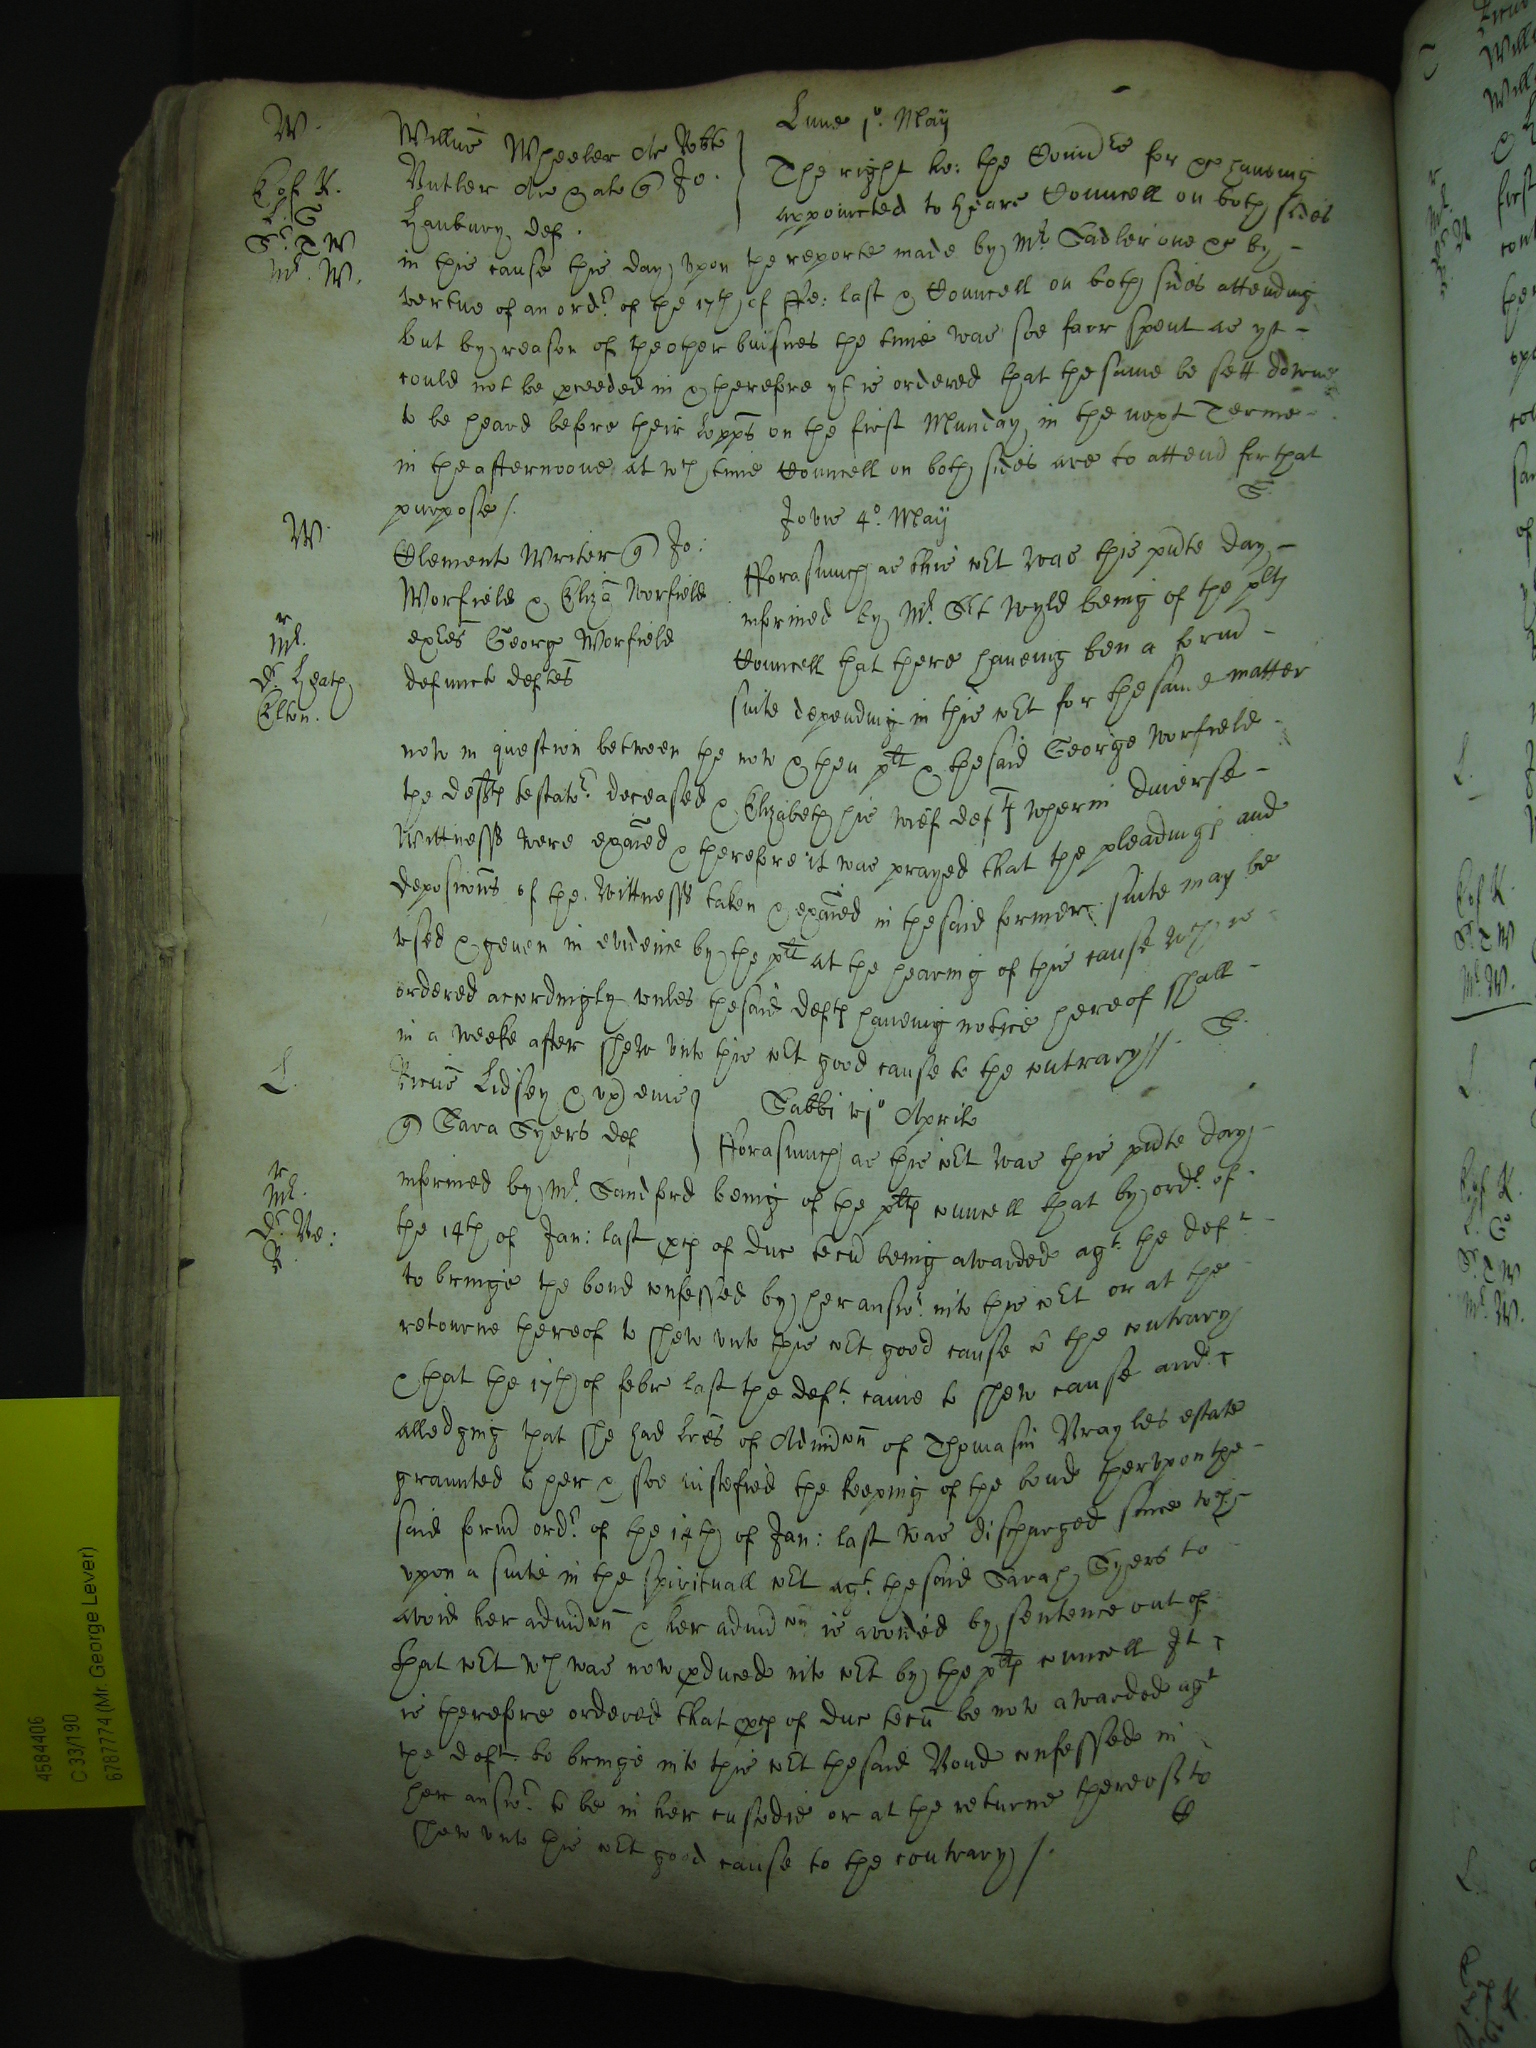 W.
Willus Wheeler Ar Robte
Butler Ar & al qs Jo.
Hanbury def.
Lune 1o. May
E of K.
L: G
Sr. T W
Mr. W.
The right ho: the Comrs for &c haveing
appointed to heare Councell on both sides
in this cause this day upon the reporte made by Mr. Sadler one &c by
vertue of an ordr. of the 17th of ffe: last & Councell on both sides attending
but by reason of the other buisnes the time was soe farr spent as yt
could not be pceeded in & therefore yt is ordered that the same be sett downe
to be heard before their Lopps on the first Munday in the next Terme
in the afternoone at wch time Councell on both sides are to attend for that
purpose /.
S.
W
Clement Writer qs Jo:
Worfield & Eliza Worfield
exLes George Worfield
defunct defles
Jovis 4o. May
r
Mr.
Dr. Heath
Elton.
fforasmuch as this cot was this pnte day
informed by Mr. Srt Wyld being of the plts
Councell that there haveing ben a formr
suite depending in this cot for the same matter
now in question between the now & then plt & the said George Worfield
the defts testator. deceased & Elizabeth his wief defts wherin diverse
Wittnesses were exaied & therefore it was prayed that the pleadings and
deposicons of the Wittnesses taken & exaied in the said former suite may be
used & geven in evidence by the plt at the hearing of this cause wch is
ordered accordingly unles the said defts haveing notice hereof shall
in a weeke after shew unto this cot good cause to the contrary //.
S.
L.
Ricus Lidsey & ux eius
qs Sara Syers def
Sabbi 1o Aprilis
r
Mr.
Dr. Ve:
R.
fforasmuch as this cot was this pnte day
informed by Mr. Sandford being of the plts councell that by ordr. of
the 14th of Jan: last pcs of duc tecu being awarded agt. the deft
to bringe the bond confessed by her answr. into this cot or at the
retourne thereof to shew unto this cot good cause to the contrary
& that the 17th of febr last the deft. came to shew cause and
alledging that she had Lres of Admdcon of Thomasin Brayles estate
graunted to her & soe iustefied the keeping of the bond therupon the
said formr ordr. of the 14th of Jan: last was discharged since wch
upon a suite in the spirituall cot agt. the said Sarah Syers to
avoid her admdcon & her admdcon is avoided by sentence out of
that cot wch was now pduced into cot by the plts councell It
is therefore ordered that pcs of duc tecu be now awarded agt
the deft to bringe into this cot the said Bond confessed in
her answr. to be in her custodie or at the returne thereof to
shew unto this cot good cause to the contrary /.
4584406
C 33/190
6787774 (Mr. George Lever)